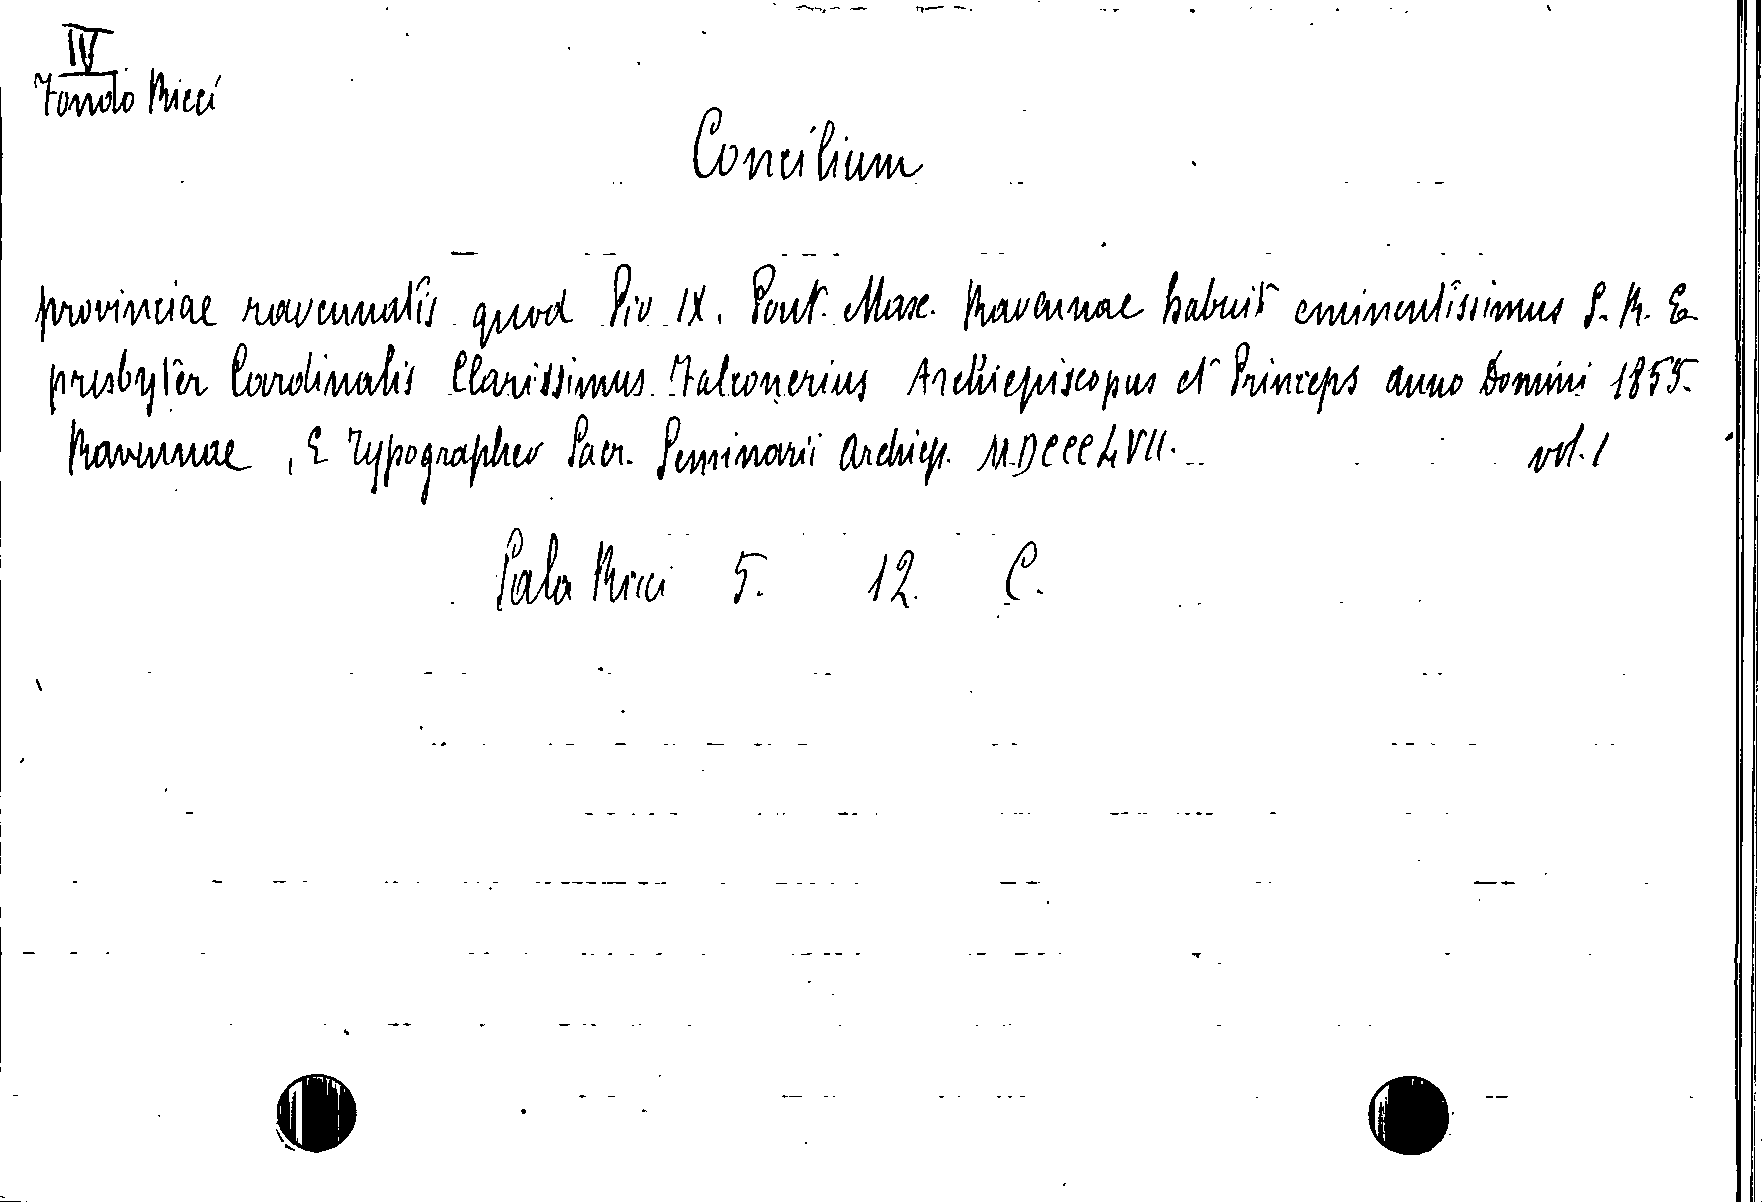 IV
Fondo Ricci
Concilium
provinciae ravennatis quod Pio IX. Pont. Max. Ravennae habuit eminentissimus S. R. E
presbyter Cardinalis Clarissimus Falconerius Archiepiscopus et Princeps anno Domini 1855.
Ravennae, E Typographeo Sacr. Seminarii Archiep. MDCCCLVII. vol. 1
Sala Ricci 5. 12. C.